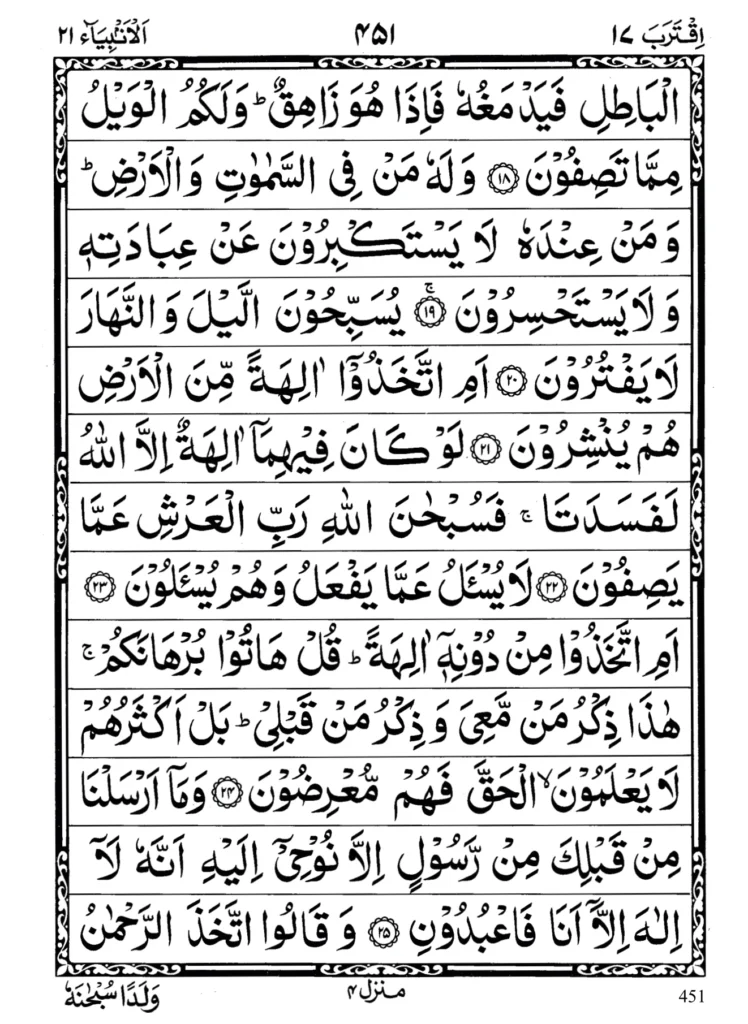 اِقْتَرَبَ ١٧ ۴۵١ اَلْاَنْۢبِيَآء ٢١
الْبَاطِلِ فَيَدْمَغُهٗ فَاِذَا هُوَ زَاهِقٌ ؕ وَلَكُمُ الْوَيْلُ
مِمَّا تَصِفُوْنَ ﴿١٨﴾ وَلَهٗ مَنْ فِى السَّمٰوٰتِ وَالْاَرْضِ ؕ
وَمَنْ عِنْدَهٗ لَا يَسْتَكْبِرُوْنَ عَنْ عِبَادَتِهٖ
وَلَا يَسْتَحْسِرُوْنَ ۚ﴿١٩﴾ يُسَبِّحُوْنَ الَّيْلَ وَالنَّهَارَ
لَا يَفْتُرُوْنَ ﴿٢٠﴾ اَمِ اتَّخَذُوْۤا اٰلِهَةً مِّنَ الْاَرْضِ
هُمْ يُنْشِرُوْنَ ﴿٢١﴾ لَوْ كَانَ فِيْهِمَاۤ اٰلِهَةٌ اِلَّا اللّٰهُ
لَفَسَدَتَا ۚ فَسُبْحٰنَ اللّٰهِ رَبِّ الْعَرْشِ عَمَّا
يَصِفُوْنَ ﴿٢٢﴾ لَا يُسْـَٔلُ عَمَّا يَفْعَلُ وَهُمْ يُسْـَٔلُوْنَ ﴿٢٣﴾
اَمِ اتَّخَذُوْا مِنْ دُوْنِهٖۤ اٰلِهَةً ؕ قُلْ هَاتُوْا بُرْهَانَكُمْ ۚ
هٰذَا ذِكْرُ مَنْ مَّعِىَ وَذِكْرُ مَنْ قَبْلِىْ ؕ بَلْ اَكْثَرُهُمْ
لَا يَعْلَمُوْنَ ۙ الْحَقَّ فَهُمْ مُّعْرِضُوْنَ ﴿٢۴﴾ وَمَاۤ اَرْسَلْنَا
مِنْ قَبْلِكَ مِنْ رَّسُوْلٍ اِلَّا نُوْحِىْۤ اِلَيْهِ اَنَّهٗ لَاۤ
اِلٰهَ اِلَّاۤ اَنَا فَاعْبُدُوْنِ ﴿٢۵﴾ وَقَالُوا اتَّخَذَ الرَّحْمٰنُ
451 منزل ۴ وَلَدًا سُبْحٰنَهٗ